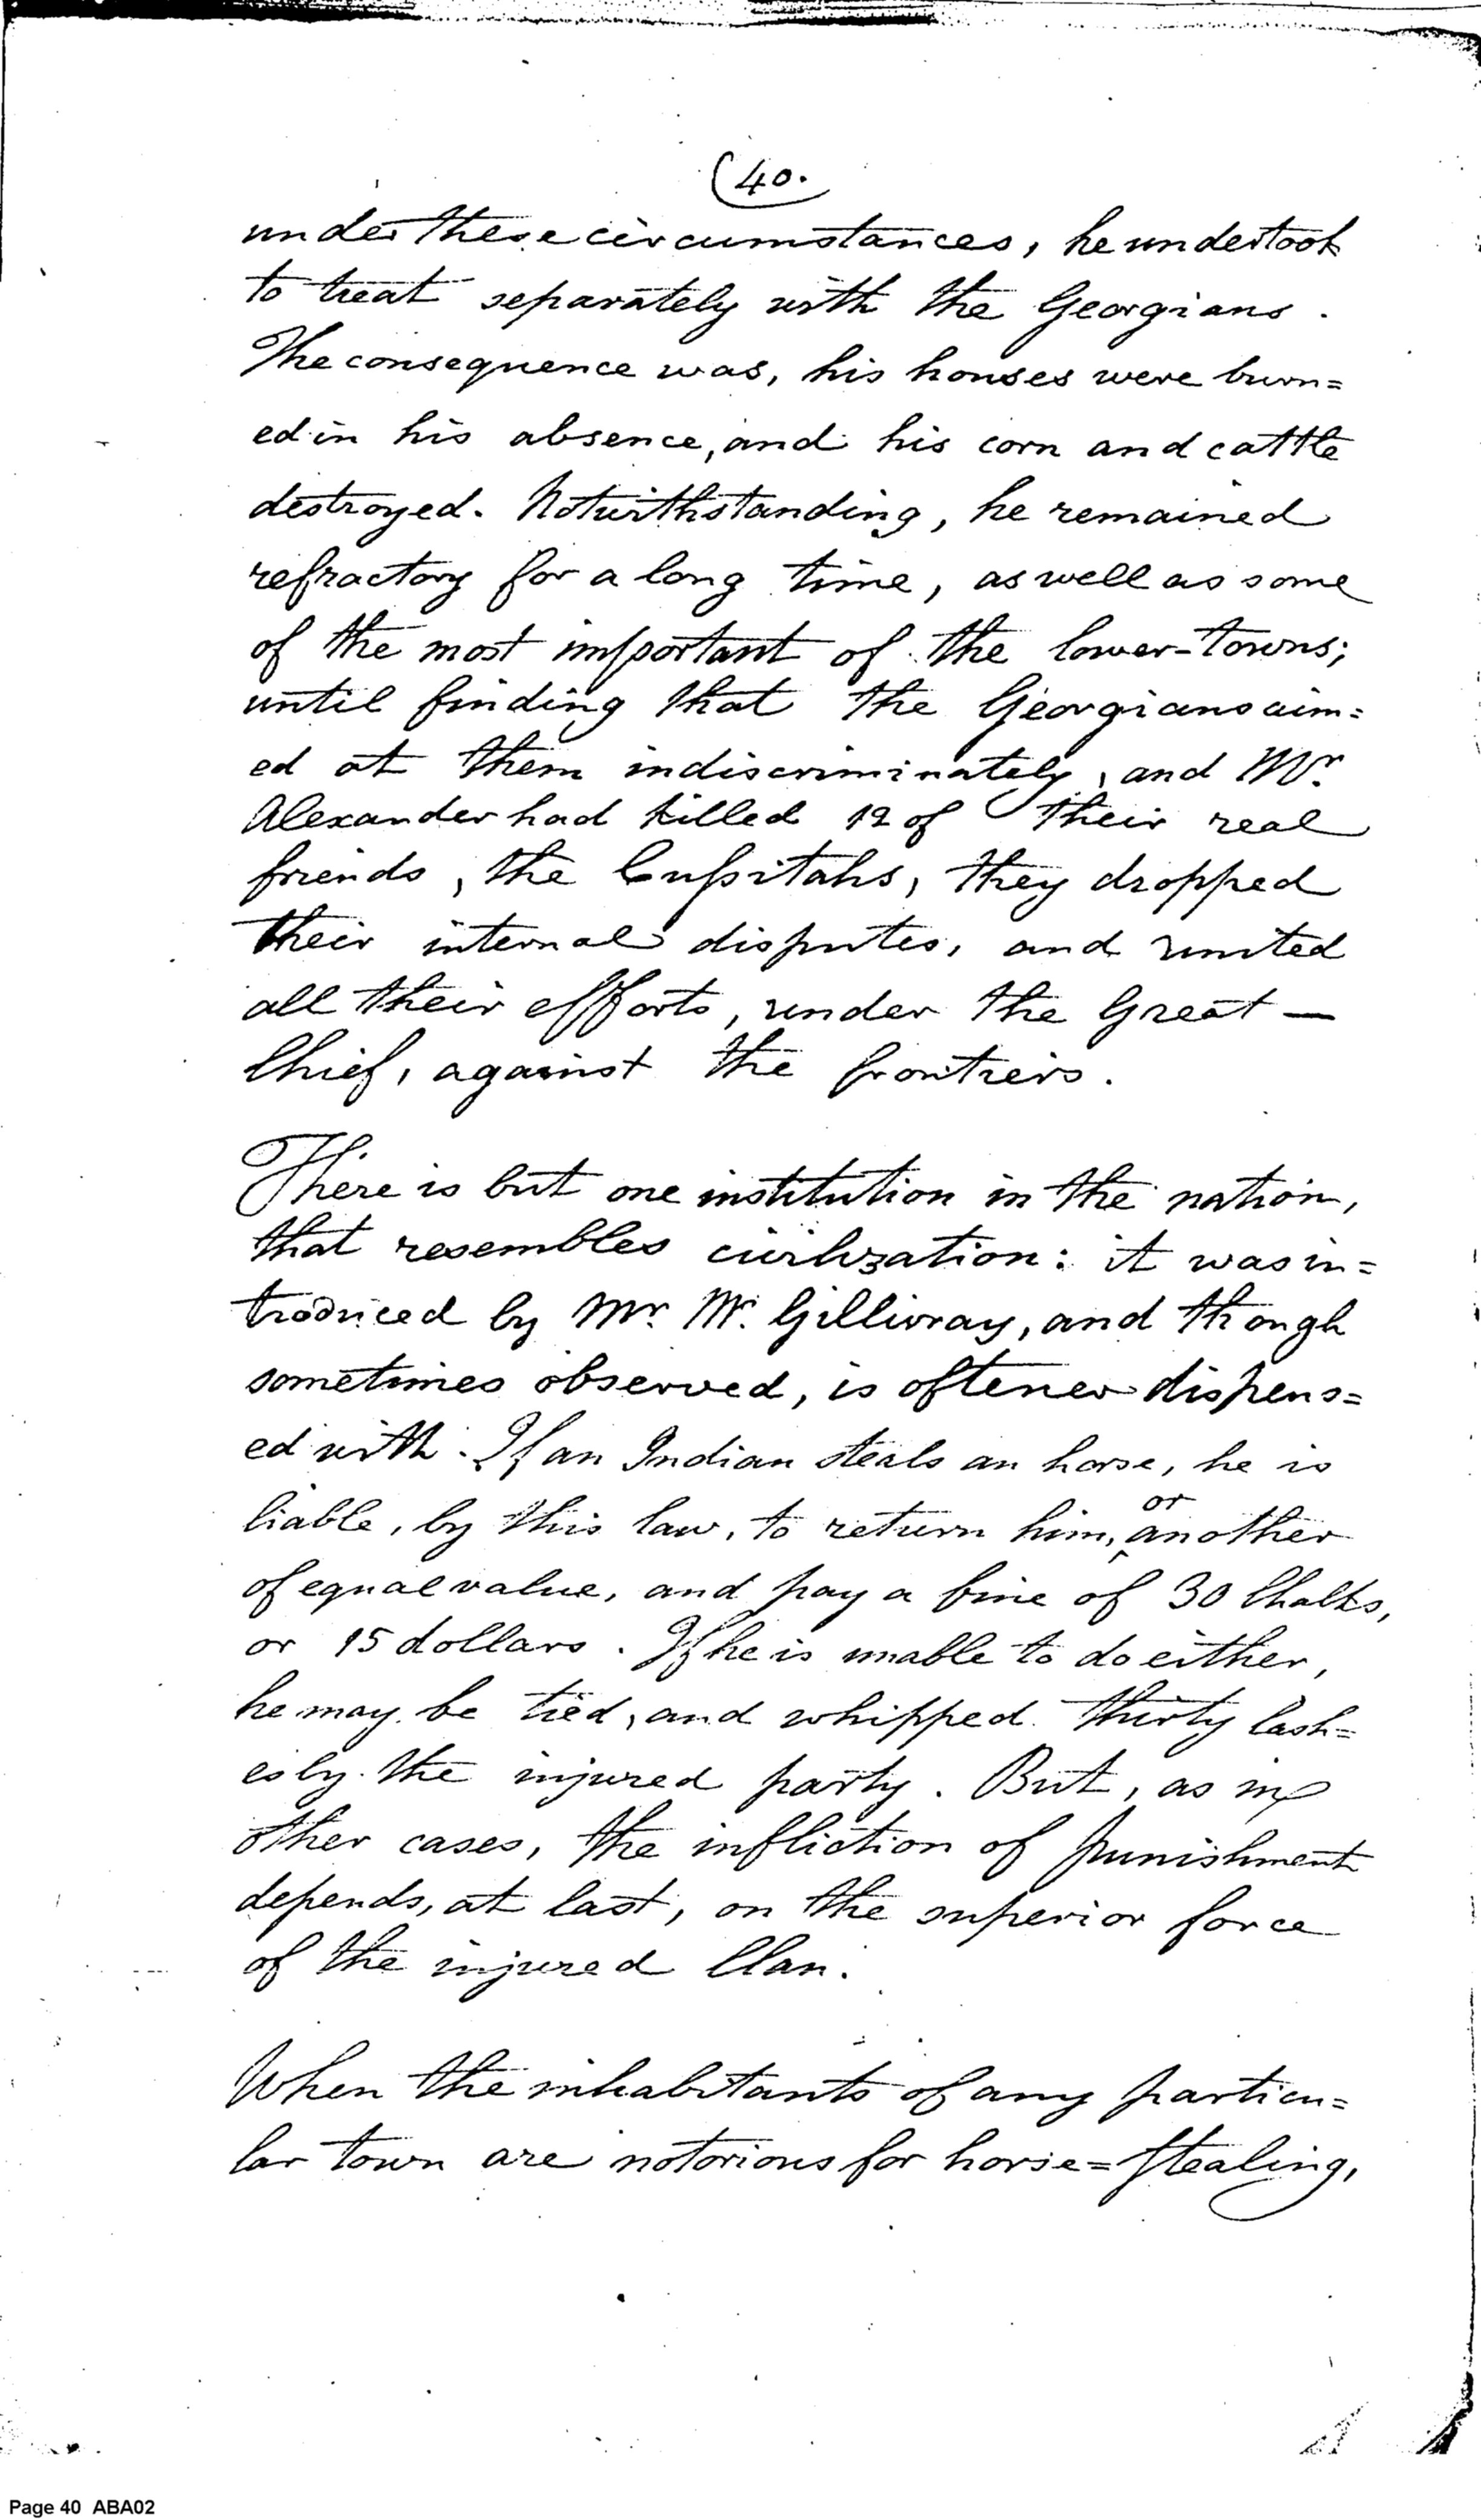 (40.
under these circumstances, he undertook
to treat separately with the Georgians.
The consequence was, his houses were burn=
ed in his absence, and his corn and cattle
destroyed. Notwithstanding, he remained
refractory for a long time, as well as some
of the most important of the lower-towns;
until finding that the Georgians aim=
ed at them indiscriminately, and Mr.
Alexander had killed 12 of their real
friends, the Cussitahs, they dropped
their internal disputes, and united
all their efforts, under the Great —
Chief, against the frontiers.
There is but one institution in the nation,
that resembles civilization: it was in=
troduced by Mr. Mc. Gillivray, and though
sometimes observed, is oftener dispens=
ed with. If an Indian steals an horse, he is
liable, by this law, to return him, or another
of equal value, and pay a fine of 30 Chalks,
or 15 dollars. If he is unable to do either,
he may be tied, and whipped thirty lash=
es by the injured party. But, as in
other cases, the infliction of punishment
depends, at last, on the superior force
of the injured Clan.
When the inhabitants of any particu=
lar town are notorious for horse=stealing,
Page 40 ABA02